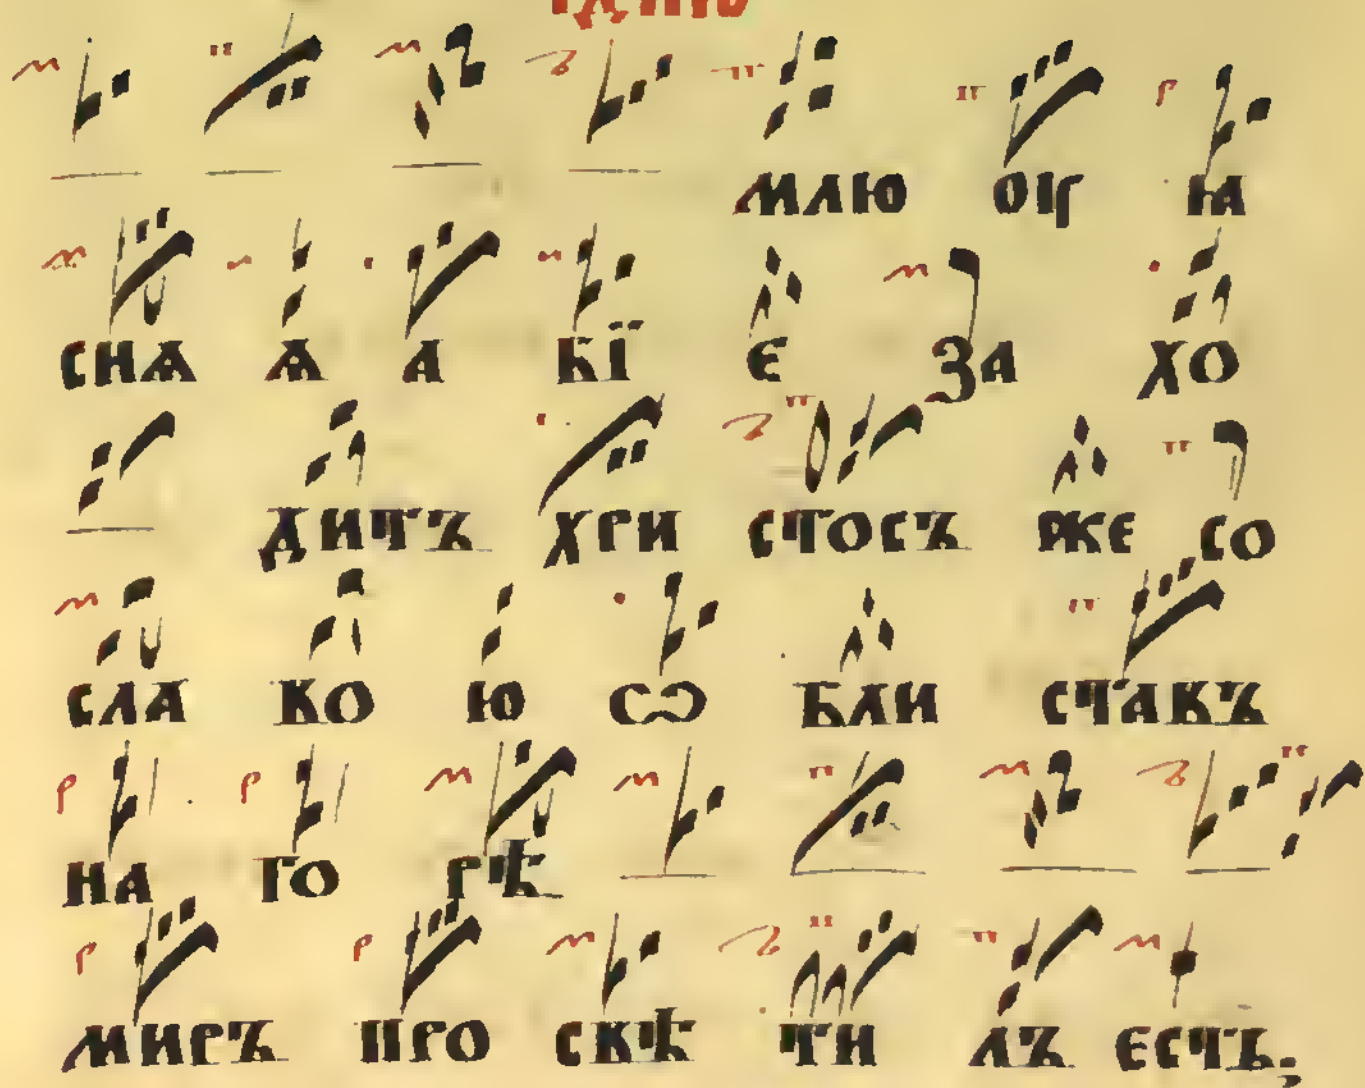 млю оу ꙗ
снѧ ѧ а бї є за хо
дитъ хри стосъ иже со
сла во ю ѡ бли ставъ
на го рѣ
миръ про свѣ ти лъ єсть.